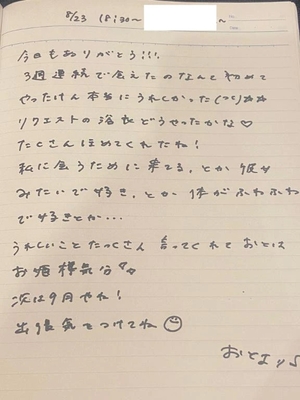 8/23 18:30〜 〜
今日もありがとう!!!
3週連続で会えたのなんて初めて
やったけん本当にうれしかった
リクエストの浴衣どうやったかな♡
たくさんほめてくれたね!
私に会うために来てる、とか
みたいで好き、とか 体がふわふわ
で好きとか…
うれしいことたっくさん言ってくれておとは
お姫様気分
次は9月やね!
出張気をつけてね
おとより